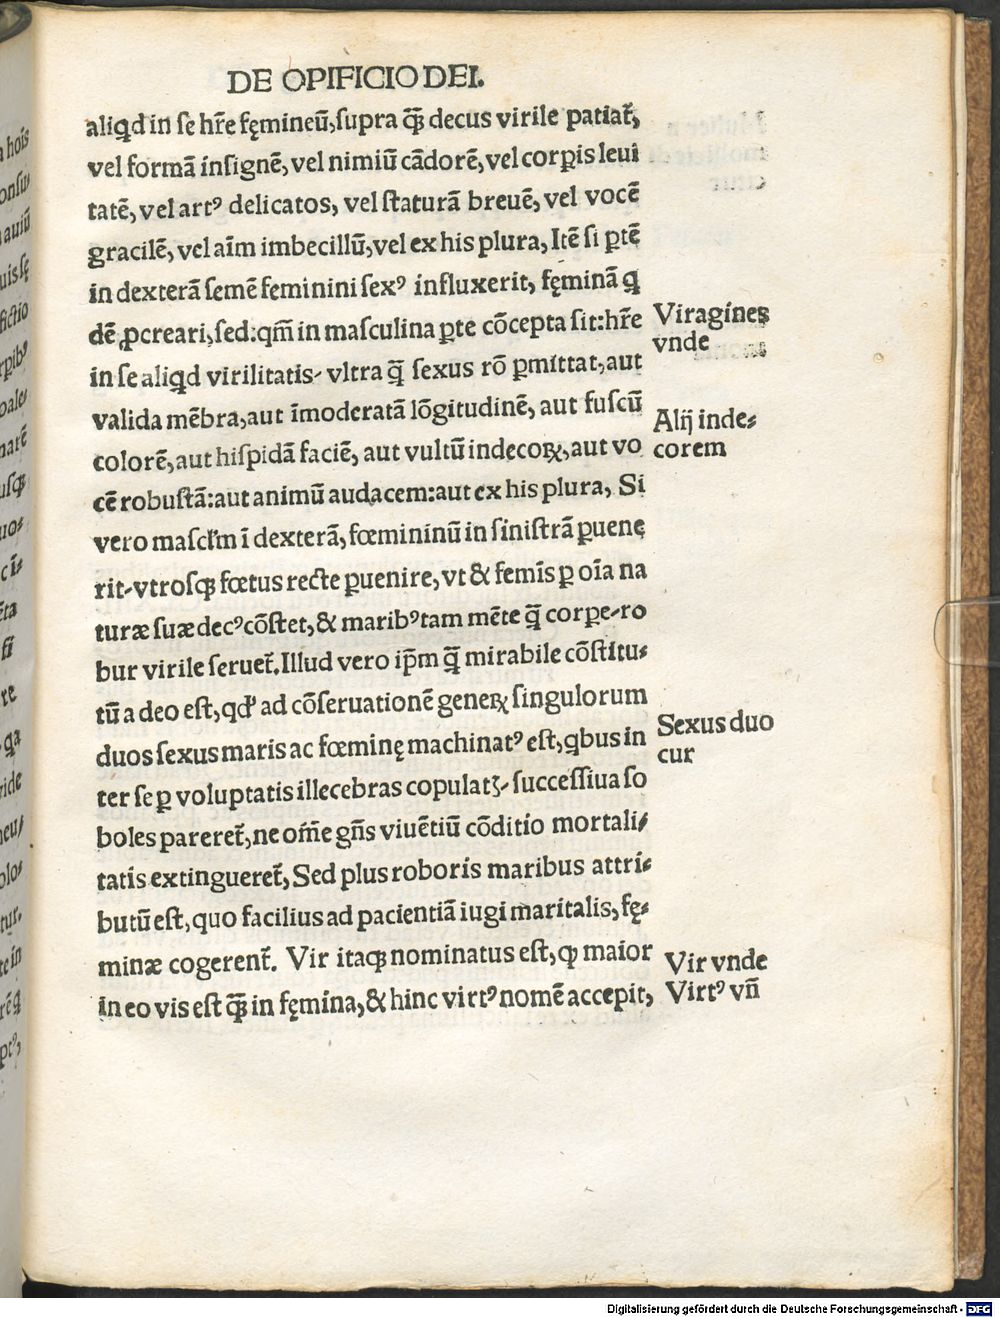 DE OPIFICIO DEI.
aliq̃d in se hr̃e fęmineũ, supra q̃ȝ decus virile patiat̃,
vel formã insignẽ, vel nimiũ cãdorẽ, vel corꝑis leui
tatẽ, vel artꝰ delicatos, vel staturã breuẽ, vel vocẽ
gracilẽ, vel aĩm imbecillũ, vel ex his plura, Itẽ si ꝑtẽ
in dexterã semẽ feminini sexꝰ influxerit, fęminã q
dẽ ꝓcreari, sed: qm̃ in masculina ꝑte cõcepta sit: hr̃e
in se aliq̃d virilitatis, vltra q̃ sexus rõ ꝑmittat, aut
valida mẽbra, aut ĩmoderatã lõgitudinẽ, aut fuscũ
colorẽ, aut hispidã faciẽ, aut vultũ indecoꝝ, aut vo
cẽ robustã: aut animũ audacem: aut ex his plura, Si
vero mascl'm ĩ dexterã, fœmininũ in sinistrã ꝑuenę
rit, vtrosqꝫ fœtus recte ꝑuenire, vt & femĩs ꝑ oĩa na
turæ suæ decꝰ cõstet, & maribꝰ tam mẽte q̃ corꝑe, ro
bur virile seruet̃. Illud vero ip̃m q̃ mirabile cõstitu⸗
tũ a deo est, qd' ad cõseruationẽ geneꝝ singulorum
duos sexus maris ac fœminę machinatꝰ est, qbus in
ter se ꝑ voluptatis illecebras copulatꝫ, successiua so
boles pareret̃, ne om̃e gñs viuẽtiũ cõditio mortali⸗
tatis extingueret̃, Sed plus roboris maribus attri⸗
butũ est, quo facilius ad pacientiã iugi maritalis, fę⸗
minæ cogerent̃. Vir itaqꝫ nominatus est, ꝙ maior
in eo vis est q̃ȝ in fęmina, & hinc virtꝰ nomẽ accepit,
Viragines
vnde
Alij inde⸗
corem
Sexus duo
cur
Vir vnde
Virtꝰ vñ
Digitalisierung gefördert durch die Deutsche Forschungsgemeinschaft - DFG